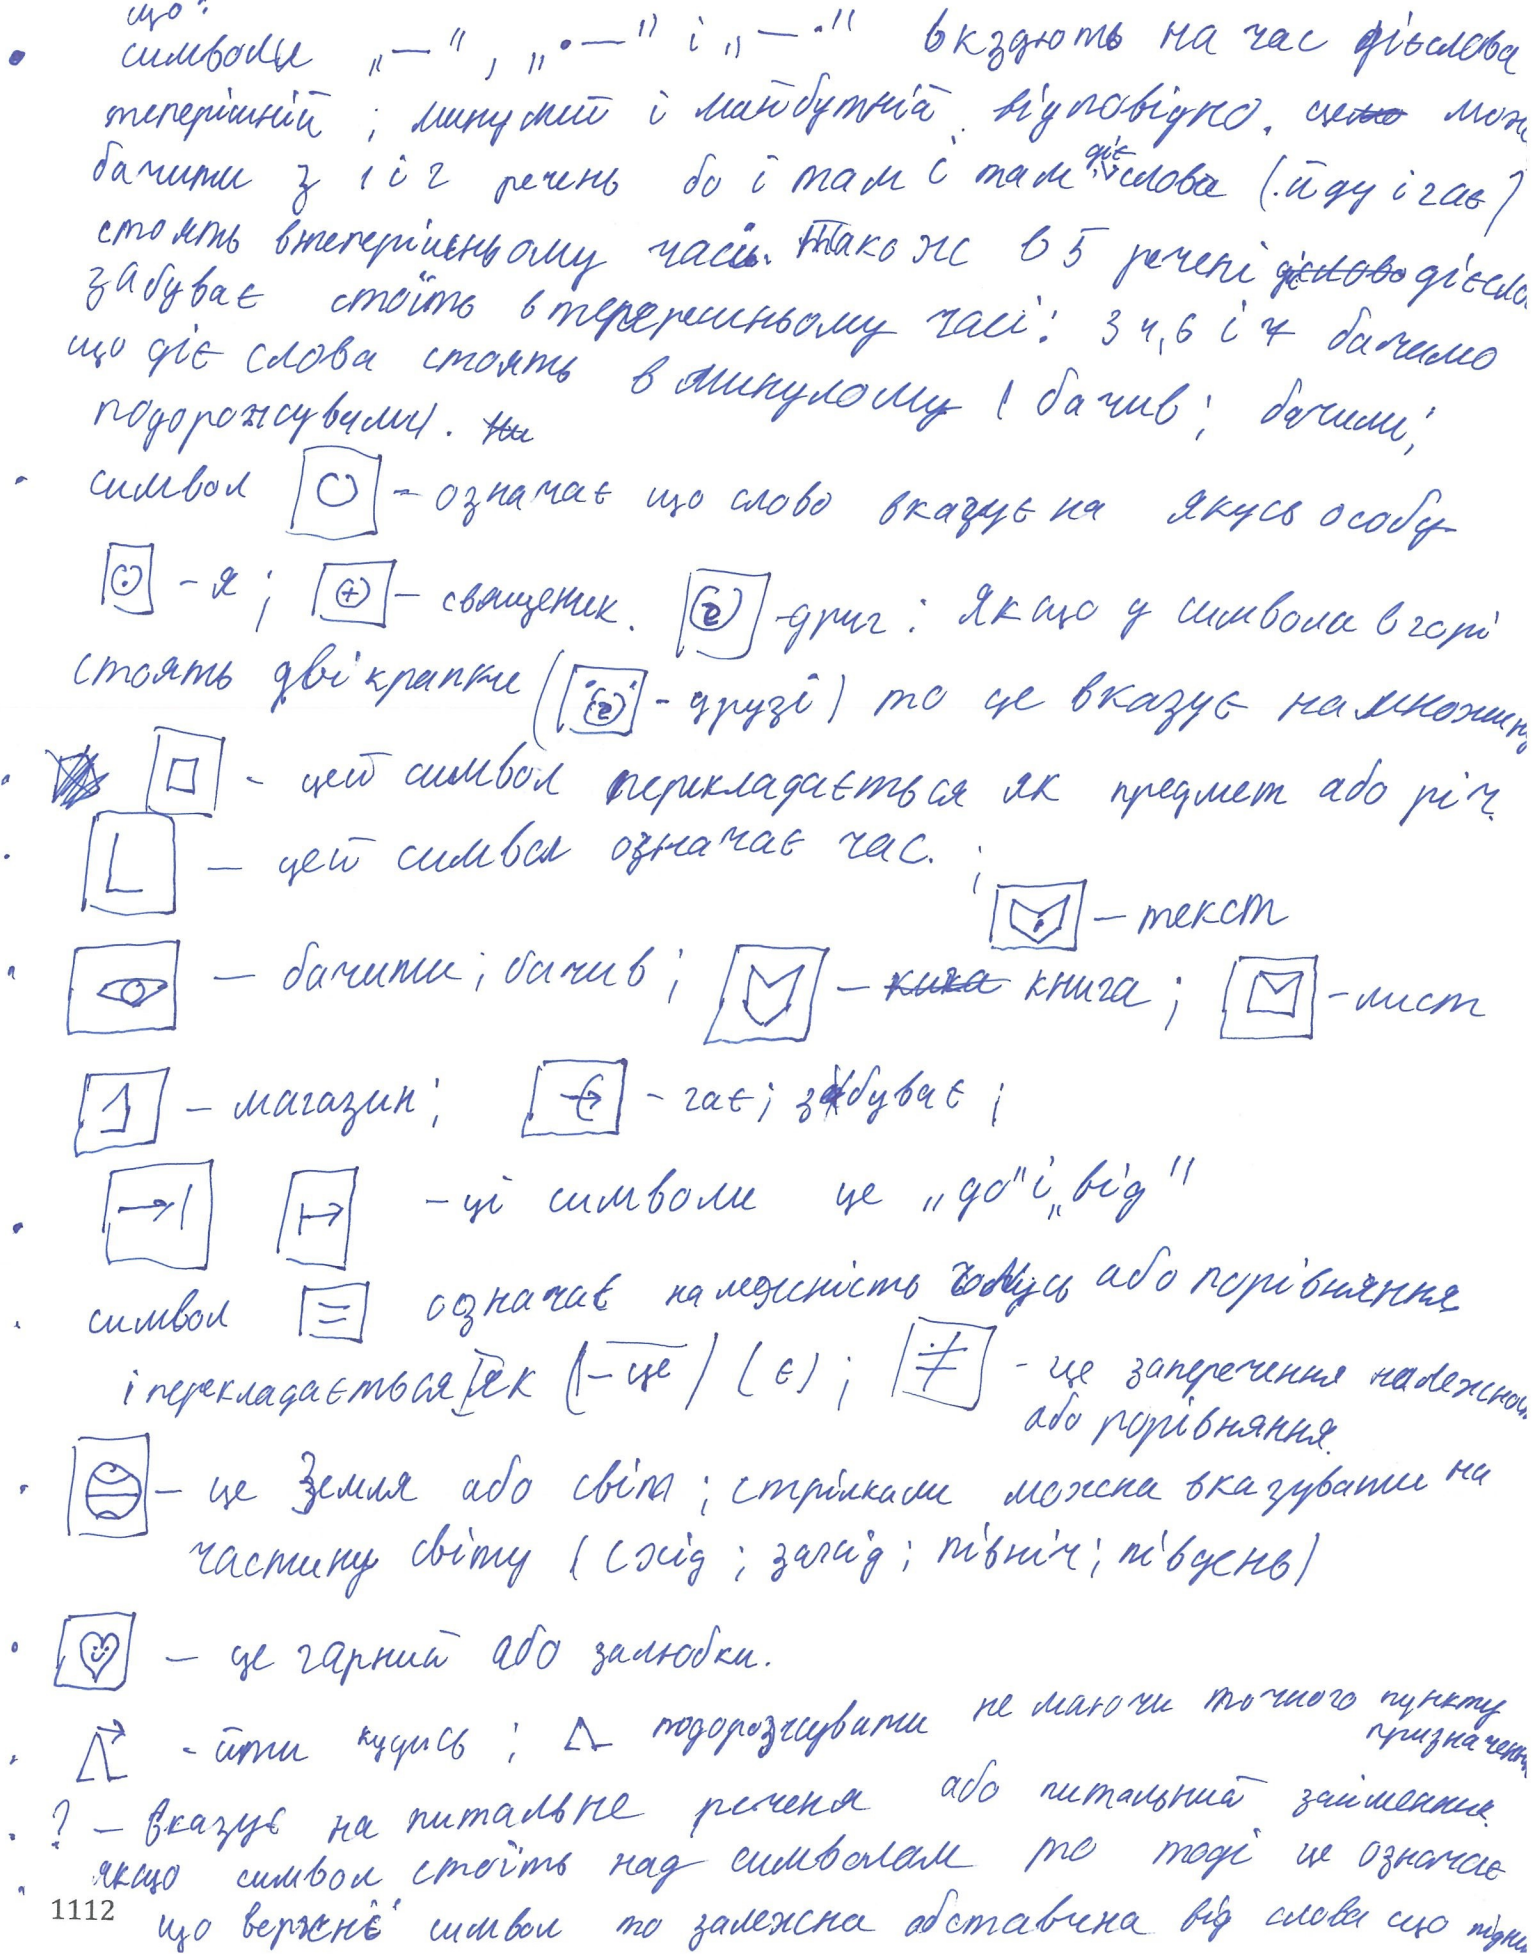 що?
• символи „—“, „•—“ і „—•“ вкздють на час дієслова
теперішній; минулий і майбутній відповідно. це мож
бачити з 1 і 2 речень бо і там і там дієслова (йду і гає)
стоять в теперішньому часі. Також в 5 речені дієсло
забуває стоїть в теперешньому часі: З 4, 6 і 7 бачимо
що діє слова стоять в минулому (бачив; бачили;
подорожували).
- символ – означає що слово вказує на якусь особу
– я; – священик. – друг: Якщо у символа в горі
стоять дві крапки ( – друзі) то це вказує на множину
• – цей символ перекладається як предмет або річ.
• L – цей символ означає час.
– текст
• – бачити; бачив; – книга; – лист
– магазин; – гає; забуває;
• – ці символи це „до“ і „від“
• символ = означає належність комусь або порівняння
і перекладається як (– це) (є); ≠ – це заперечення належнос
або порівняння.
• – це Земля або світ; стрілками можна вказувати на
частину світу (схід; захід; північ; південь)
• – це гарний або залюбки.
• – йти кудись; подорожувати не маючи точного пункту
призначення
• ? – вказує на питальне речення або питальний займенник.
• якщо символ стоїть над символам то тоді це означає
1112 що верхнє символ то залежна обставина від слова що підни